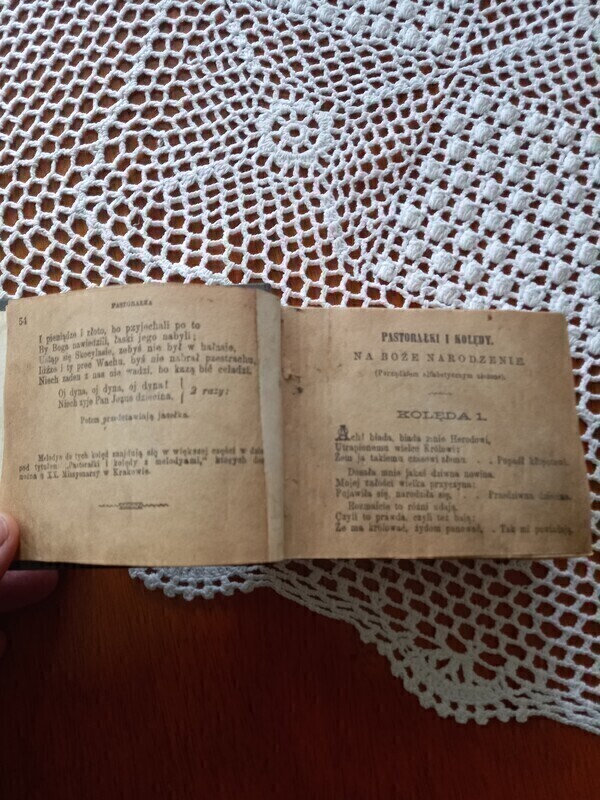 54
PASTORAŁKA
I pieniądze i złoto, bo przyjechali po to
By Boga nawiedzili, łaski jego nabyli;
Ustąp się Stocyłasie, żebyś nie był w hałasie,
Idźże i ty precz Wachu, byś nie nabrał paestrachu,
Niech żaden z nas nie wadzi, bo każą bić czeladzi.
Oj dyna, oj dyna, oj dyna!
Niech żyje Pan Jezus dziecina.
2 razy:
Potem przedstawiają jasełka.
Melodye do tych kolęd znajdują się w większej części w
pod tytułem: „Pastorałki i kolędy z melodyami,” których
można u XX. Missyonarzy w Krakowie.
PASTORAŁKI I KOLĘDY.
NA BOŻE NARODZENIE
(Porządkiem alfabetycznym ułożone).
KOLĘDA 1.
Ach! biada, biada mnie Herodowi,
Utrapionemu wielce Królowi;
Żem ja takiemu czasowi złemu . . Popadł kłopotowi.
Doszła mnie jakaś dziwna nowina,
Mojej żałości wielka przyczyna:
Pojawiła się, narodziła się, . Przedziwna dziecina.
Rozmaicie to różni udają.
Czyli to prawda, czyli też bają;
Że ma królować, żydom panować, . Tak mi powiadają.